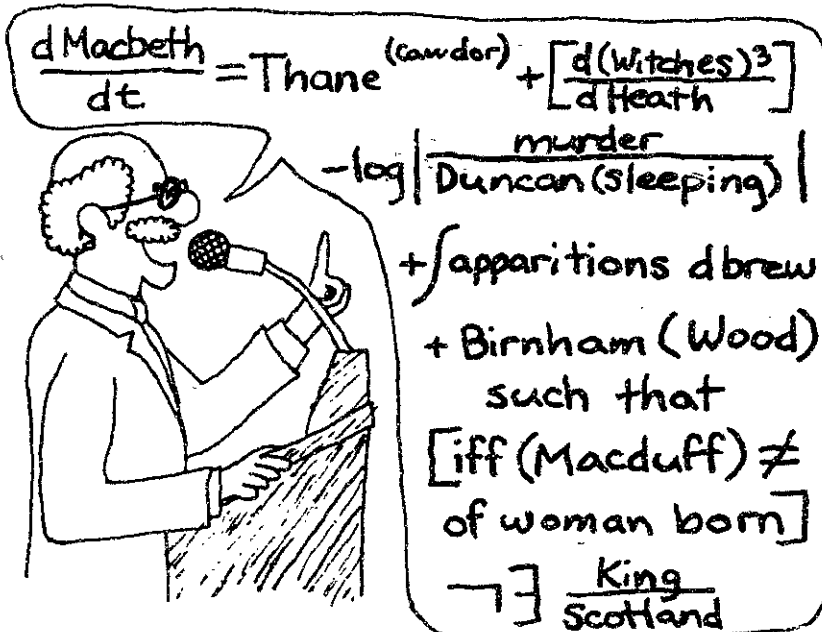 dMacbeth/dt = Thane^(cawdor) + [d(Witches)³/dHeath]
-log|murder/Duncan(sleeping)|
+∫apparitions dbrew
+ Birnham (Wood)
such that
[iff (Macduff) ≠
of woman born]
¬∃ King/Scotland